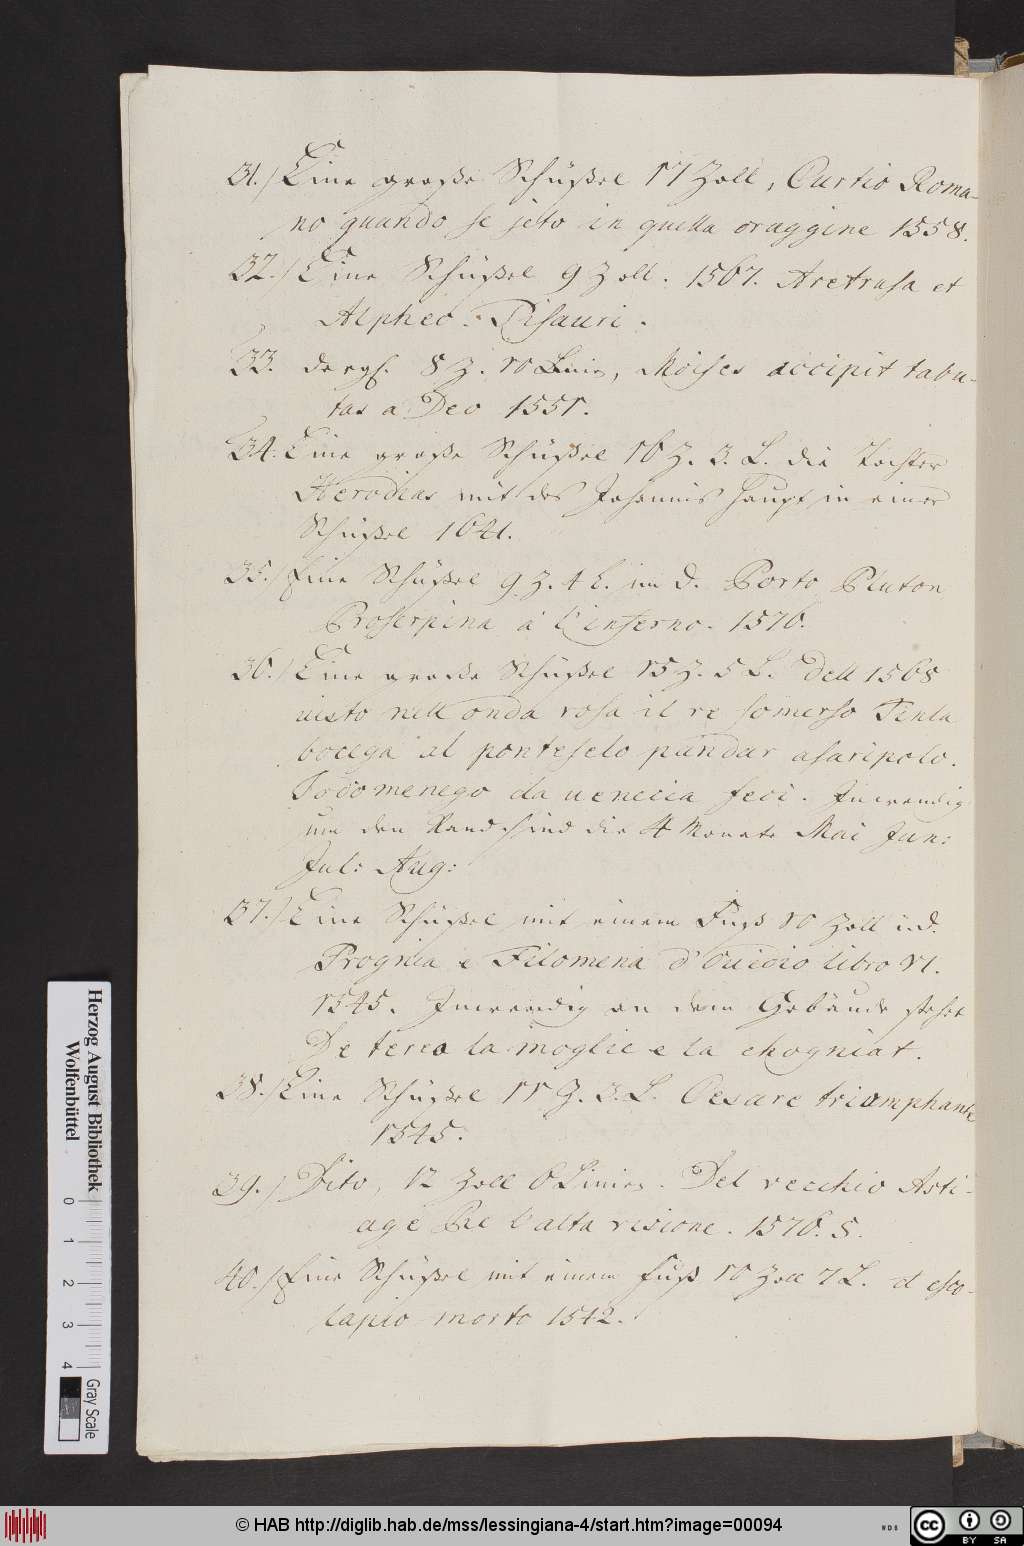 31.) Eine große Schüßel 17 Zoll, Curtio Roma-
no quando se jeto in quella oraggine 1558.
32.) Eine Schüßel 9 Zoll. 1567. Aretrusa et
Alpheo. Pisauri.
33. dergl. 8 Z. 10 Linien, Moises accipit tabu-
tas a Deo 1551.
34. Eine große Schüßel 16 Z. 3. L. die Tochter
Herodias mit des Johannis Haupt in einer
Schüßel 1641.
35.) Eine Schüßel 9 Z. 4 L. im D. Porto Pluton
Proserpina a l'inferno. 1576.
36.) Eine große Schüßel 15 Z. 5 L. Dell 1568
uisto nell onda rosa il re somerso Tenla
bocega al ponteselo pandar asaripolo.
Io domenego da uenecia feci. Inwendig
um den Rand sind die 4 Monate Mai Jun:
Jul: Aug:
37.) Eine Schüßel mit einem Fuß 10 Zoll i. D.
Prognia e Filomena d'Ouidio libro VI.
1545. Inwendig an dem Gebäude stehet
De tereo la moglie e la chogniat.
38.) Eine Schüßel 11 Z. 3. L. Cesare triomphante
1545.
39.) Dito, 12 Zoll 6 Linien. Del vecchio Asti-
age Re l'alta visione. 1576. S.
40.) Eine Schüßel mit einem Fuß 10 Zoll 7 L. d esco-
lapio morto 1542.
Herzog August Bibliothek
Wolfenbüttel
0 1 2 3 4
Gray Scale
© HAB http://diglib.hab.de/mss/lessingiana-4/start.htm?image=00094
WDB
cc BY SA